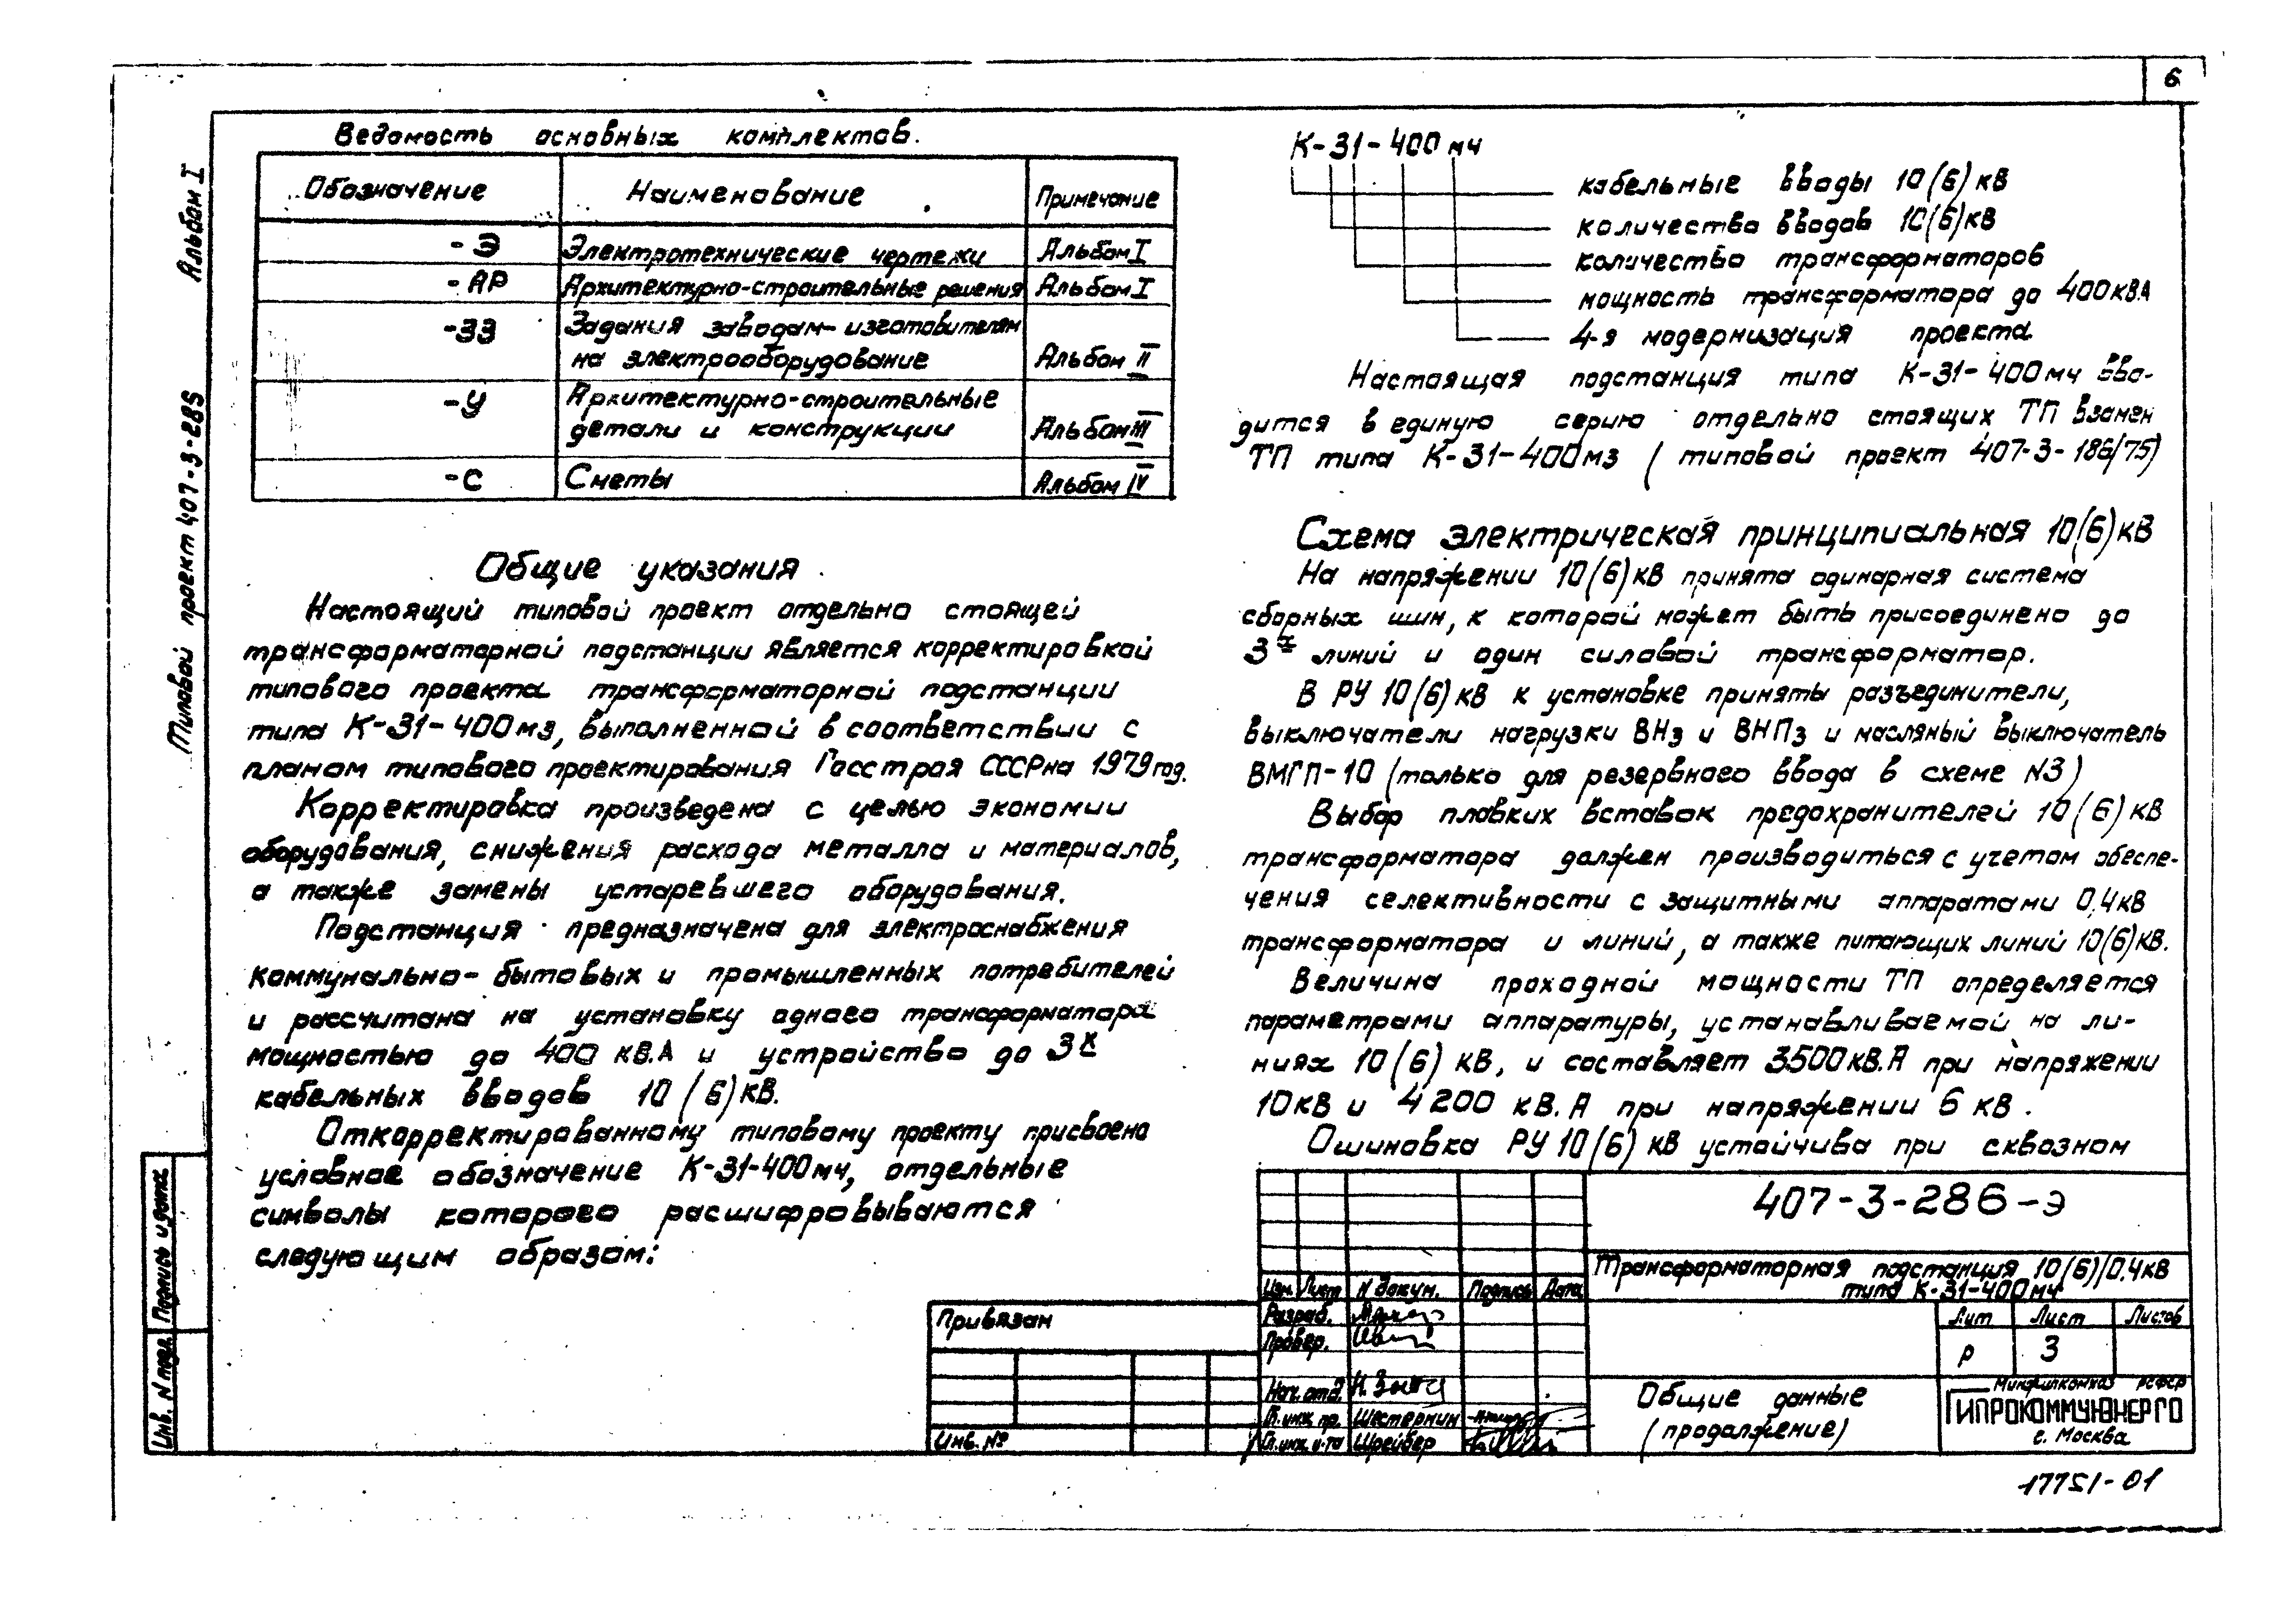 6
Альбом I
Типовой проект 407-3-286
Ведомость основных комплектов.
Обозначение Наименование Примечание
-Э Электротехнические чертежи Альбом I
-АР Архитектурно-строительные решения Альбом I
-ЗЗ Задания заводам-изготовителям
на электрооборудование Альбом II
-У Архитектурно-строительные
детали и конструкции Альбом III
-С Сметы Альбом IV
Общие указания
Настоящий типовой проект отдельно стоящей
трансформаторной подстанции является корректировкой
типового проекта трансформаторной подстанции
типа К-31-400мз, выполненной в соответствии с
планом типового проектирования Госстроя СССР на 1979 год.
Корректировка произведена с целью экономии
оборудования, снижения расхода металла и материалов,
а также замены устаревшего оборудования.
Подстанция предназначена для электроснабжения
коммунально-бытовых и промышленных потребителей
и рассчитана на установку одного трансформатора
мощностью до 400 кВ.А и устройство до 3х
кабельных вводов 10 (6) кВ.
Откорректированному типовому проекту присвоено
условное обозначение К-31-400мч, отдельные
символы которого расшифровываются
следующим образом:
К-31-400 мч
кабельные вводы 10(6) кВ
количество вводов 10(6)кВ
количество трансформаторов
мощность трансформатора до 400кВ.А
4-я модернизация проекта
Настоящая подстанция типа К-31-400мч вво-
дится в единую серию отдельно стоящих ТП взамен
ТП типа К-31-400мз (типовой проект 407-3-186/75)
Схема электрическая принципиальная 10(6)кВ
На напряжении 10(6)кВ принята одинарная система
сборных шин, к которой может быть присоединено до
3х линий и один силовой трансформатор.
В РУ 10(6) кВ к установке приняты разъединители,
выключатели нагрузки ВНз и ВНПз и масляный выключатель
ВМГП-10 (только для резервного ввода в схеме N3)
Выбор плавких вставок предохранителей 10(6) кВ
трансформатора должен производиться с учетом обеспе-
чения селективности с защитными аппаратами 0,4кВ
трансформатора и линий, а также питающих линий 10(6)кВ.
Величина проходной мощности ТП определяется
параметрами аппаратуры, устанавливаемой на ли-
ниях 10(6) кВ, и составляет 3500кВ.А при напряжении
10кВ и 4200 кВ.А при напряжении 6 кВ.
Ошиновка РУ 10(6) кВ устойчива при сквозном
407-3-286-Э
Трансформаторная подстанция 10(6)/0,4кВ
типа К-31-400мч
Изм. Лист N докум. Подпись Дата
Разраб.
Провер.
Нач. отд.
Гл. инж. пр. Шестернин
Гл. инж. и-та Шрейбер
Лит Лист Листов
Р 3
Общие данные
(продолжение)
Минжилкомхоз РСФСР
ГИПРОКОММУНЭНЕРГО
г. Москва
Привязан
Инв. №
Инв. N подл. Подпись и дата
17751-01